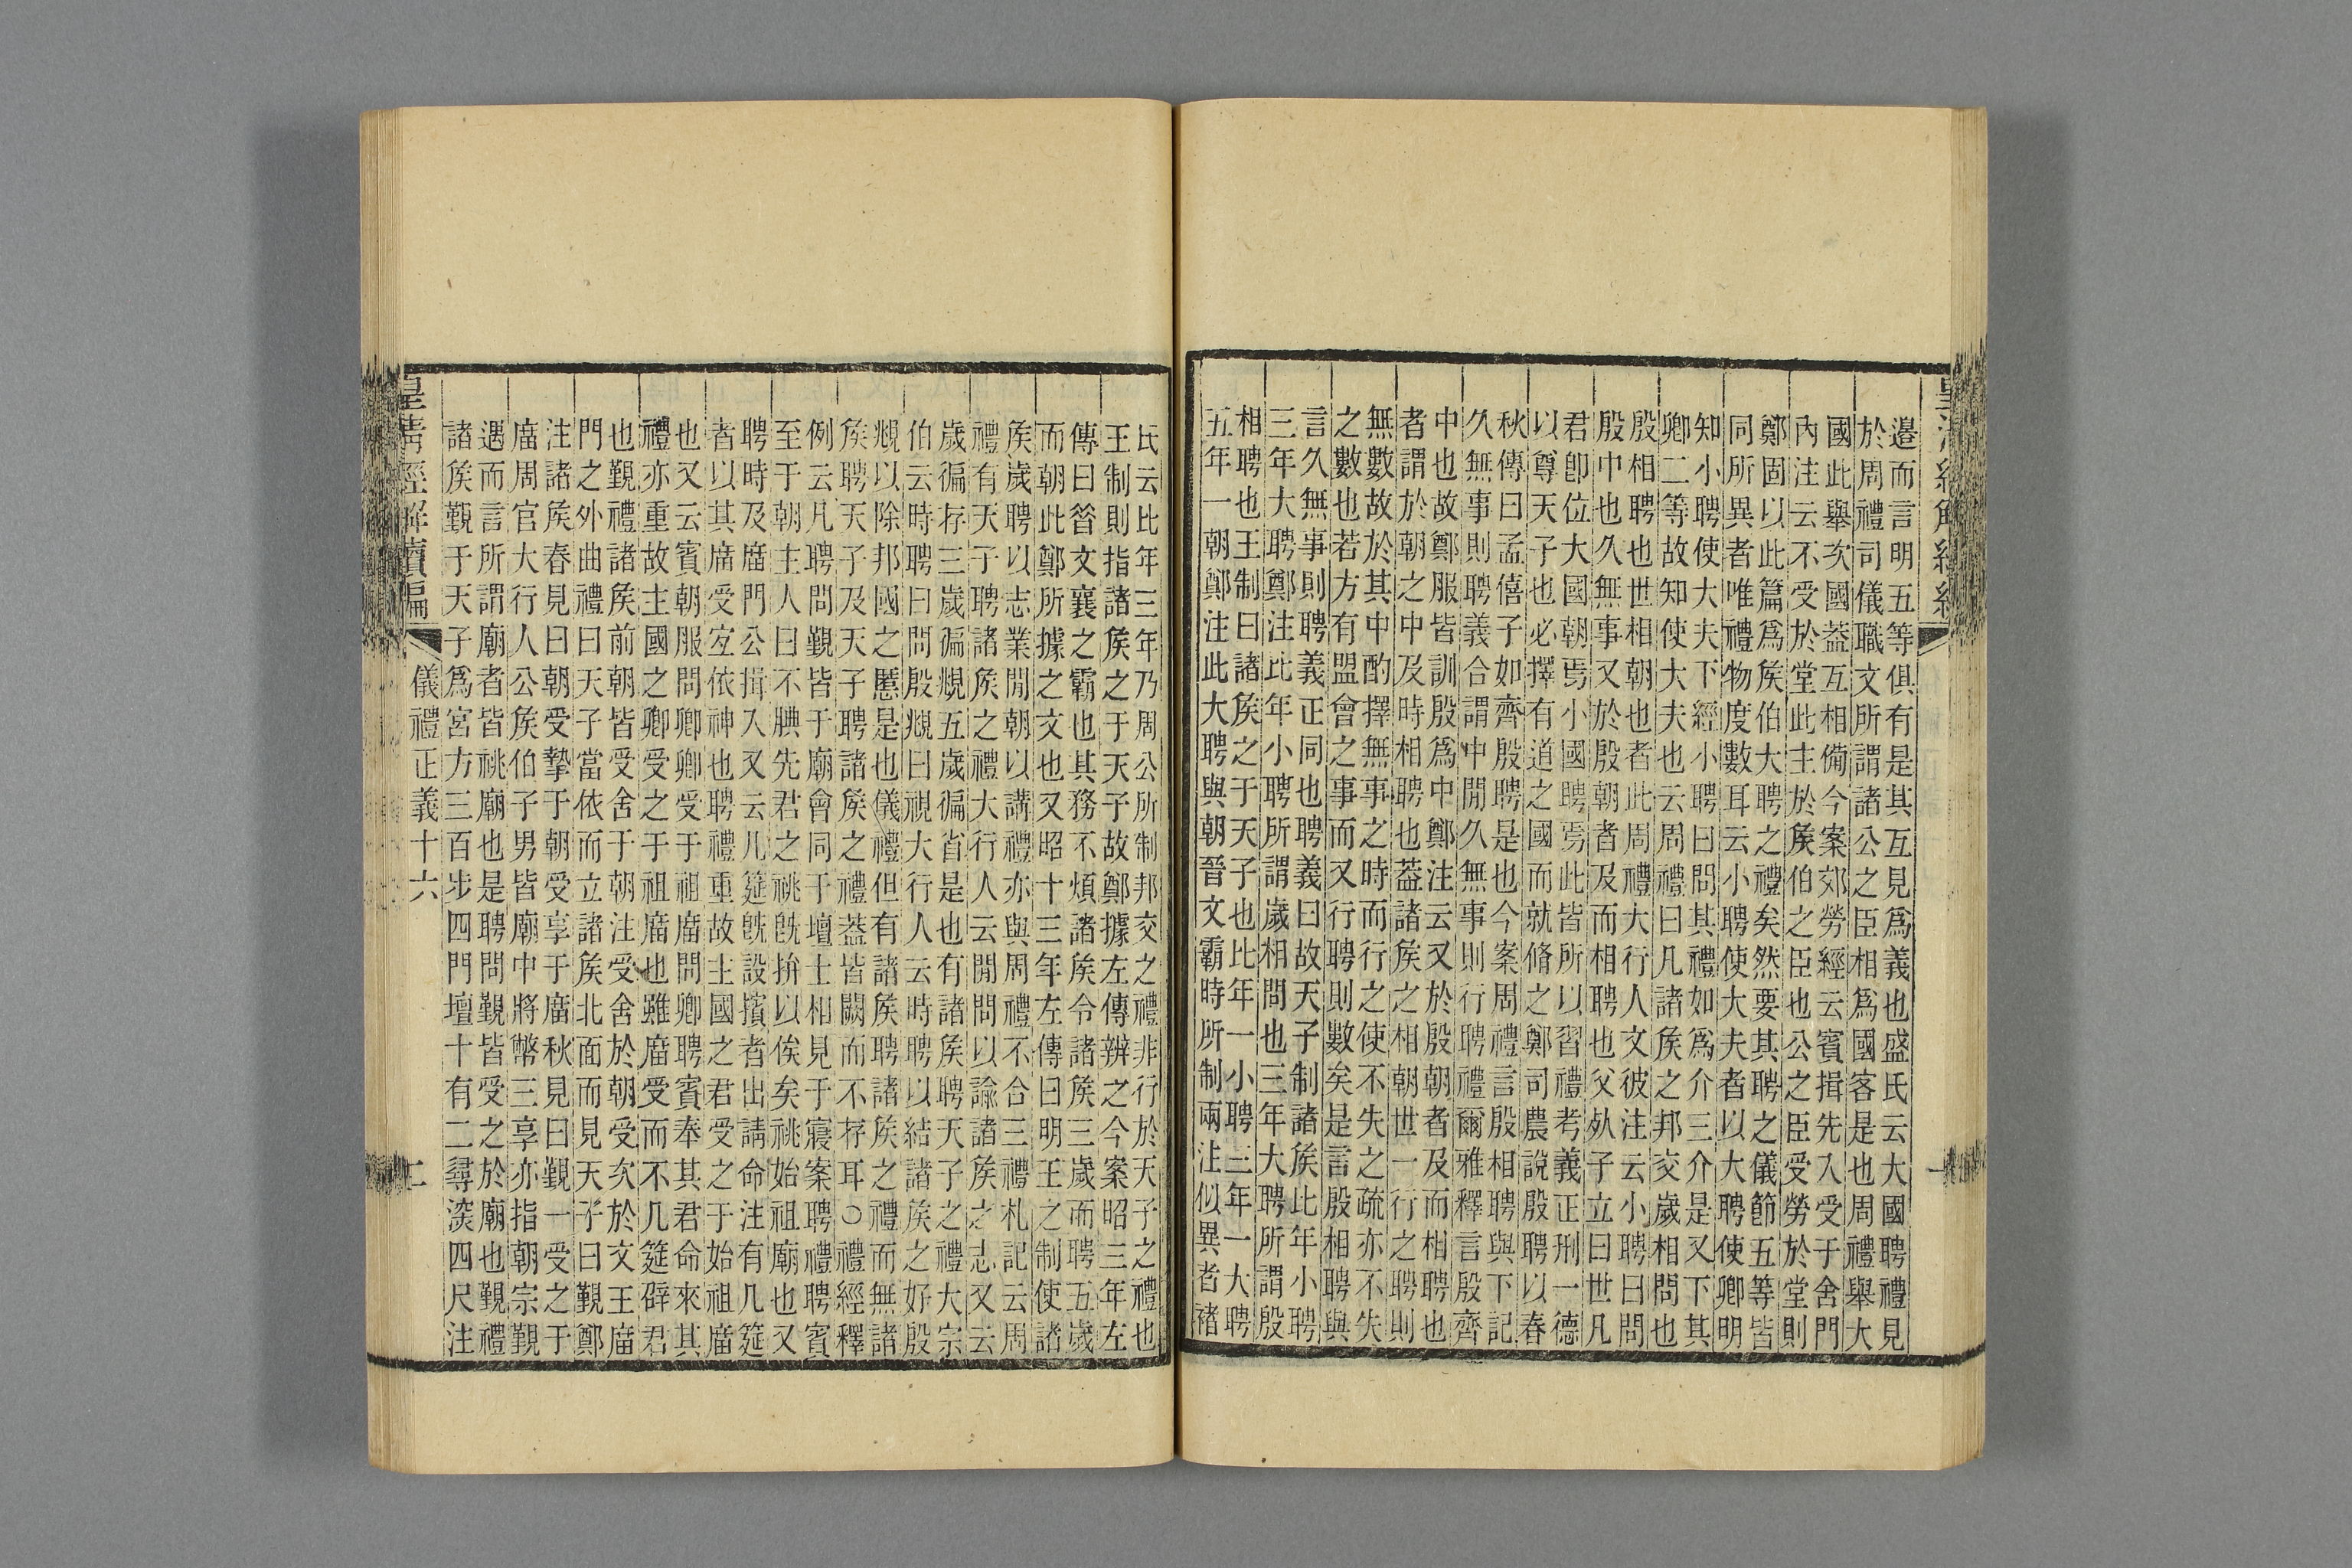 邉而言明五等俱有是其互見爲義也盛氏云大國聘禮見
於周禮司儀職文所謂諸公之臣相爲國客是也周禮舉大
國此舉次國葢互相備今案郊勞經云賓揖先入受于舍門
內注云不受於堂此主於矦伯之臣也公之臣受勞於堂則
鄭固以此篇爲矦伯大聘之禮矣然要其聘之儀節五等皆
同所異者唯禮物度數耳云小聘使大夫者以大聘使卿明
知小聘使大夫下經小聘曰問其禮如爲介三介是又下其
卿二等故知使大夫也云周禮曰凡諸矦之邦交歲相問也
殷相聘也世相朝也者此周禮大行人文彼注云小聘曰問
殷中也久無事又於殷朝者及而相聘也父𣦸子立曰世凡
君卽位大國朝焉小國聘焉此皆所以習禮考義正刑一德
以尊天子也必擇有道之國而就脩之鄭司農說殷聘以春
秋傳曰孟僖子如齊殷聘是也今案周禮言殷相聘與下記
久無事則聘義合謂中閒久無事則行聘禮爾雅釋言殷齊
中也故鄭服皆訓殷爲中鄭注云又於殷朝者及而相聘也
者謂於朝之中及時相聘也葢諸矦之相朝世一行之聘則
無數故於其中酌擇無事之時而行之使不失之疏亦不失
之數也若方有盟會之事而又行聘則數矣是言殷相聘與
言久無事則聘義正同也聘義曰故天子制諸矦比年小聘
三年大聘鄭注比年小聘所謂歲相問也三年大聘所謂殷
相聘也王制曰諸矦之于天子也比年一小聘三年一大聘
五年一朝鄭注此大聘與朝晉文霸時所制兩注似異者褚
氏云比年三年乃周公所制邦交之禮非行於天子之禮也
王制則指諸矦之于天子故鄭據左傳辨之今案昭三年左
傳曰昝文襄之霸也其務不煩諸矦令諸矦三歲而聘五歲
而朝此鄭所據之文也又昭十三年左傳曰明王之制使諸
矦歲聘以志業閒朝以講禮亦與周禮不合三禮札記云周
禮有天子聘諸矦之禮大行人云閒問以諭諸矦之志又云
歲徧存三歲徧覜五歲徧省是也有諸矦聘天子之禮大宗
伯云時聘曰問殷覜曰視大行人云時聘以結諸矦之好殷
覜以除邦國之慝是也儀禮但有諸矦聘諸矦之禮而無諸
矦聘天子及天子聘諸矦之禮葢皆闕而不存耳○禮經釋
例云凡聘問覲皆于廟會同于壇士相見于寢案聘禮聘賓
至于朝主人曰不腆先君之祧旣拚以俟矣祧始祖廟也又
聘時及廟門公揖入又云几筵旣設擯者出請命注有几筵
者以其廟受宜依神也聘禮重故主國之君受之于始祖廟
也又云賓朝服問卿卿受于祖廟問卿聘賓奉其君命來其
禮亦重故主國之卿受之于祖廟也雖廟受而不几筵辟君
也覲禮諸矦前朝皆受舍于朝注受舍於朝受次於文王廟
門之外曲禮曰天子當依而立諸矦北面而見天子曰覲鄭
注諸矦春見曰朝受摯于朝受享于廟秋見曰覲一受之于
廟周官大行人公矦伯子男皆廟中將幣三享亦指朝宗覲
遇而言所謂廟者皆祧廟也是聘問覲皆受之於廟也覲禮
諸矦覲于天子爲宮方三百步四門壇十有二尋深四尺注
皇清經解續編
儀禮正義十六
二